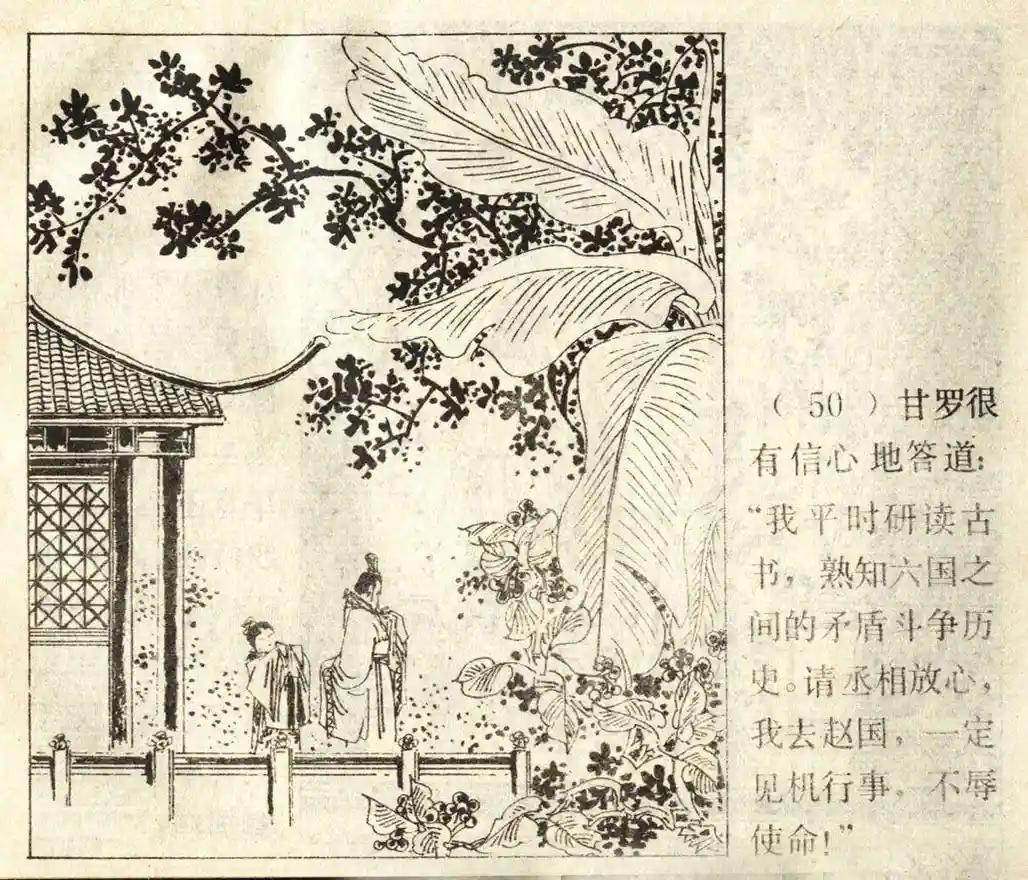 （50）甘罗很
有信心地答道：
“我平时研读古
书，熟知六国之
间的矛盾斗争历
史。请丞相放心，
我去赵国，一定
见机行事，不辱
使命！”